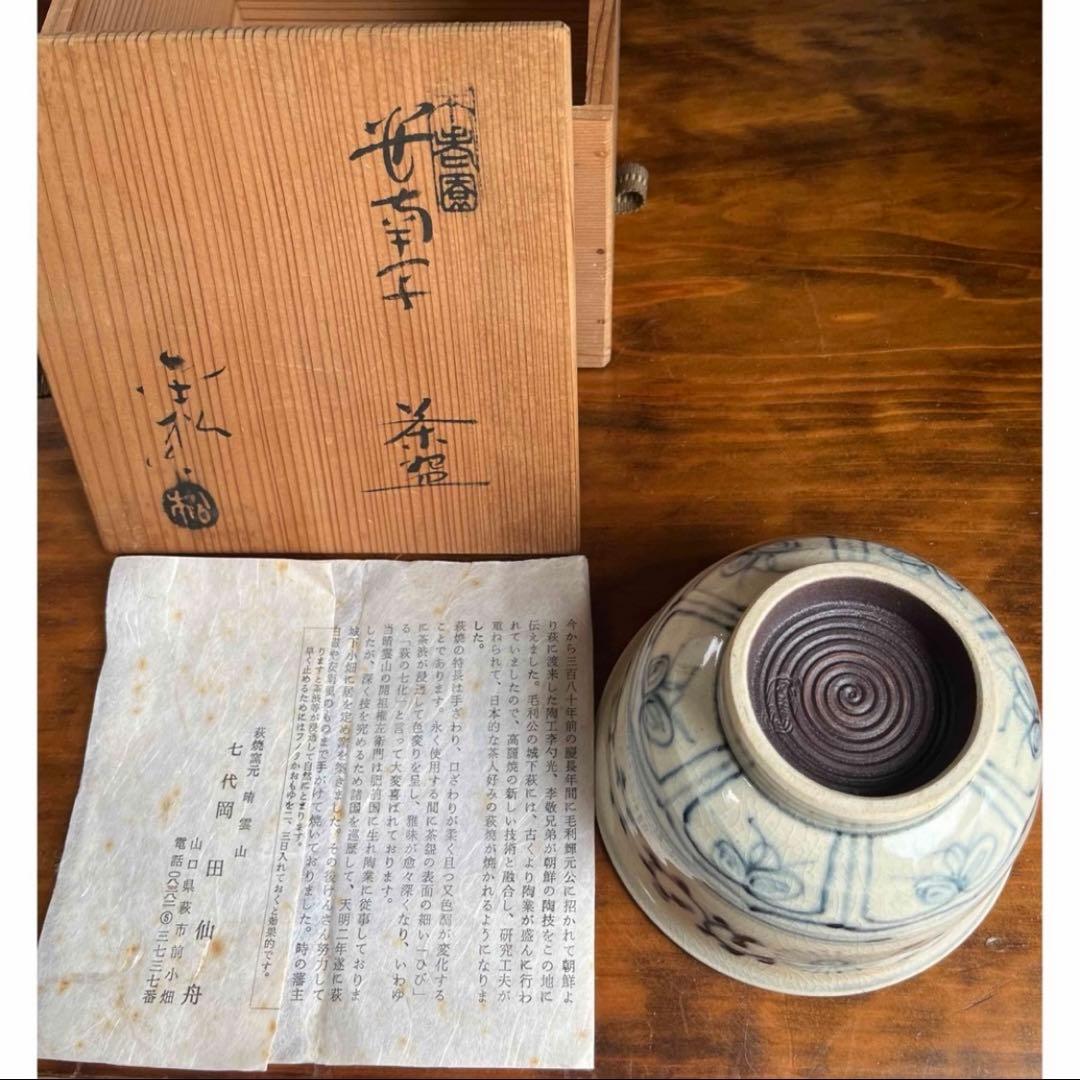 茶盌
今から三百八十年前の慶長年間に毛利輝元公に招かれて朝鮮よ
り萩に渡来した陶工李勺光、李敬兄弟が朝鮮の陶技をこの地に
伝えました。毛利公の城下萩には、古くより陶業が盛んに行わ
れていましたので、高麗焼の新しい技術と融合し、研究工夫が
重ねられて、日本的な茶人好みの萩焼が焼かれるようになりま
した。
萩焼の特長は手ざわり、口ざわりが柔く且つ又色彩が変化する
ことであります。永く使用する間に茶盌の表面の細い「ひび」
に茶渋が浸透して色変りを呈し、雅味が愈々深くなり、いわゆ
る「萩の七化」と言って大変喜ばれております。
当晴雲山の開祖権左衛門は肥前国に生れ陶業に従事しておりま
したが、深く技を究めるため諸国を巡歴して、天明二年遂に萩
城下小畑に居を定め窯を築きました。その後けんさん努力して
白磁や安南風のものまで手がけて焼いておりました。時の藩主
りますと茶渋等が浸透して自然にとまります。
早く止めるためにはフノリかおもゆを二、三日入れておくと効果的です。
萩焼窯元 晴雲山
七代 岡田仙舟
山口県萩市前小畑
電話〇八三八二⑤三七三七番